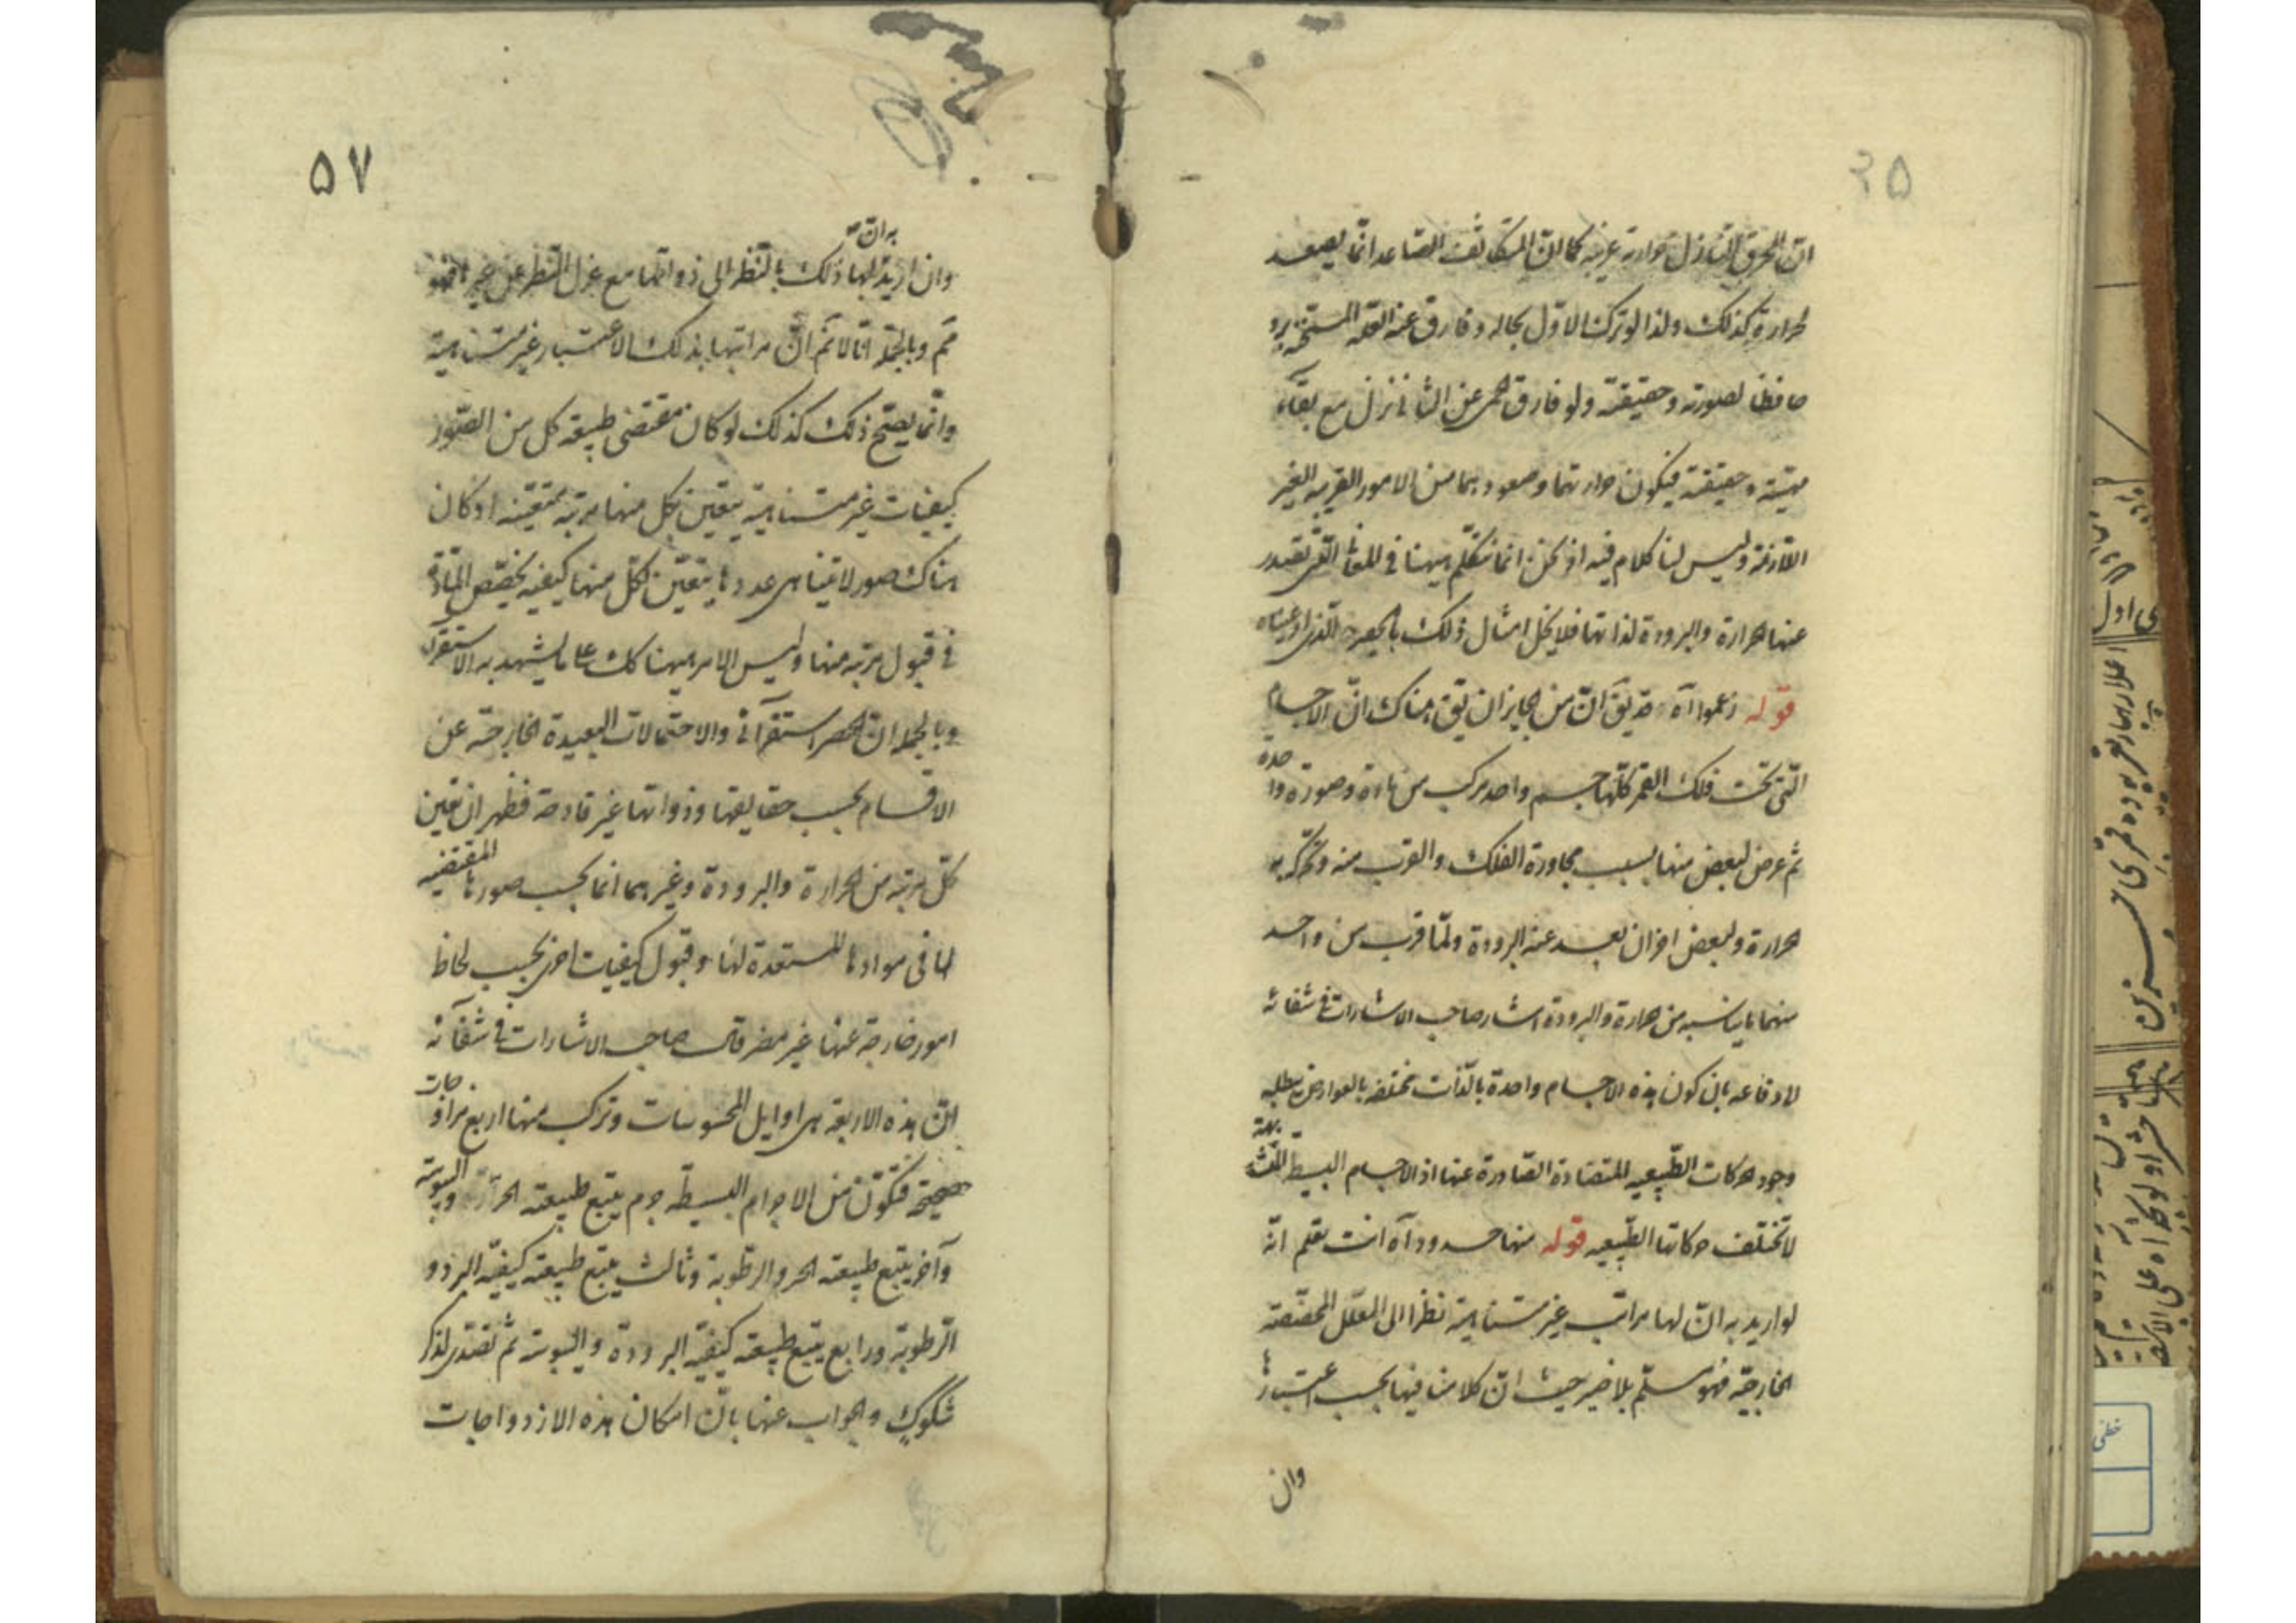 ان المحرق النازل حرارته غريبة كما ان المتكاثف الصاعد انما يصعد
لحرارة كذلك ولذا لو ترك الاول بحاله وفارق عنه المسخن يبرد
حافظا لصورته وحقيقته ولو فارق الحمى عن الثانى نزل مع بقاء
مهيته وحقيقته فيكون حرارتهما وصعودهما من الامور الغريبة الغير
اللازمة وليس لنا كلام فيه اذ نحن انما نتكلم ههنا فى التى تصدر
عنها الحرارة والبرودة لذاتها فلا يخل امثال ذلك بالحصر الذى ادعيناه
قوله زعموا آه قد يق ان من الجايز ان يق هناك ان الاجسام
التى تحت فلك القمر كلها جسم واحد مركب من مادة وصورة واحدة
ثم عرض لبعض منها بسبب مجاورة الفلك والقرب منه وتحركه به
حرارة ولبعض اخر ان بعد عنه البرودة ولما قرب من واحد
منهما ما يناسبه من حرارة والبرودة اشار صاحب الاشارات فى شفائه
لا دفاعه بان كون هذه الاجسام واحدة بالذات مختلفة بالعوارض يبطله
وجود حركات الطبيعيه المتضادة الصادرة عنها اذ الاجسام البسيط المتشابهة
لا تختلف حركاتها الطبيعيه قوله منها حدود آه انت تعلم انه
لو اريد به ان لها مراتب غير متناهية نظرا الى العلل المختلفة
الخارجية فهو مسلم بلا ضير حيث ان كلامنا فيها بحسب اعتبارها
وان
٥٧
وان اريد به ان لها ذلك بالنظر الى ذواتها مع عزل النظر عن غيرها فهو
مم وبالجملة انا لا نم ان مراتبها بذلك الاعتبار غير متناهية
وانما يصح ذلك كذلك لو كان مقتضى طبيعة كل من الصور
كيفيات غير متناهية يتعين بكل منها مرتبة معينة او كان
هناك صور لا يتناهى عددها يتعين لكل منها كيفية يخصص المادة
فى قبول مرتبة منها وليس الامر ههنا كك على ما يشهد به الاستقراء
وبالجملة ان الحصر استقرآئى والاحتمالات البعيدة الخارجة عن
الاقسام بحسب حقايقها وذواتها غير قادحة فظهر ان تعين
كل مرتبة من الحرارة والبرودة وغيرهما انما بحسب صورها المقتضية
لها فى موادها المستعدة لها وقبول كيفيات اخرى بحسب لحاظ
امور خارجة عنها غير مضر قال صاحب الاشارات فى شفآئه
ان هذه الاربعة هى اوايل المحسوسات وتركب منها اربع مزاوجات
صحيحة فتكون من الاجرام البسيطة جرم يتبع طبيعته الحرارة واليبوسة
وآخر يتبع طبيعته الحر والرطوبة وثالث يتبع طبيعته كيفية البرد و
الرطوبة ورابع يتبع طبيعته كيفية البرودة واليبوسة ثم تصدى لذكر
شكوك والجواب عنها بان امكان هذه الازدواجات